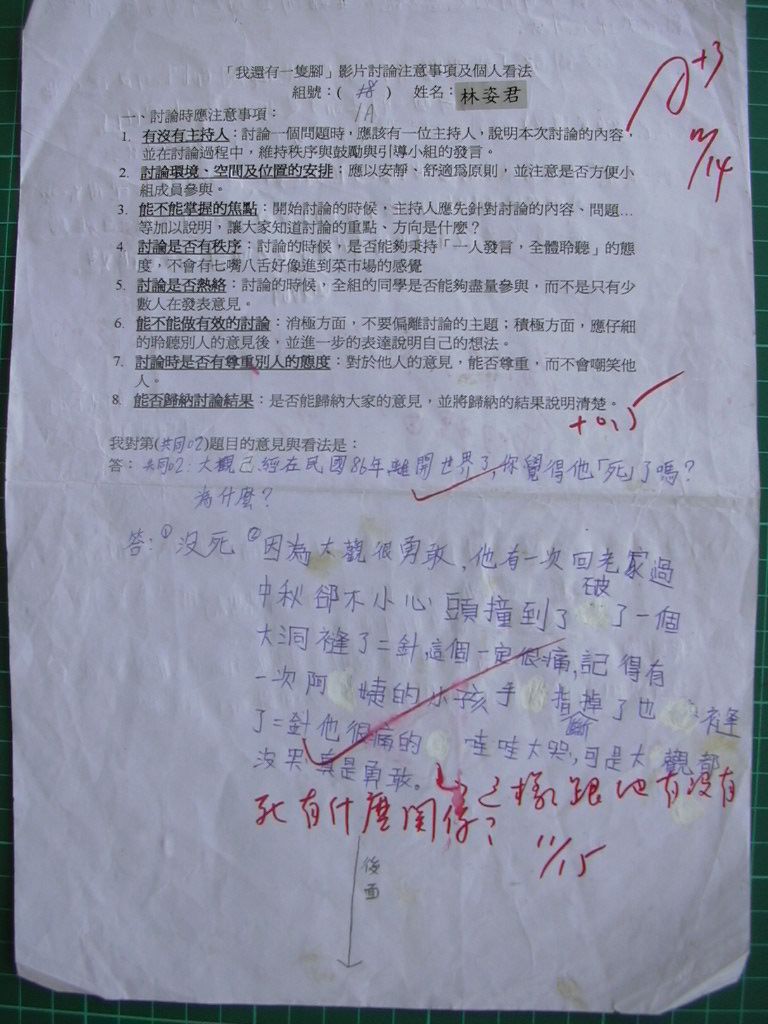 「我還有一隻腳」影片討論注意事項及個人看法
組號：( ) 姓名：林姿君
1A
A+3
11/14
一、討論時應注意事項：
1. 有沒有主持人：討論一個問題時，應該有一位主持人，說明本次討論的內容，
並在討論過程中，維持秩序與鼓勵與引導小組的發言。
2. 討論環境、空間及位置的安排；應以安靜、舒適為原則，並注意是否方便小
組成員參與。
3. 能不能掌握的焦點：開始討論的時候，主持人應先針對討論的內容、問題…
等加以說明，讓大家知道討論的重點、方向是什麼？
4. 討論是否有秩序：討論的時候，是否能夠秉持「一人發言，全體聆聽」的態
度，不會有七嘴八舌好像進到菜市場的感覺
5. 討論是否熱絡：討論的時候，全組的同學是否能夠盡量參與，而不是只有少
數人在發表意見。
6. 能不能做有效的討論：消極方面，不要偏離討論的主題；積極方面，應仔細
的聆聽別人的意見後，並進一步的表達說明自己的想法。
7. 討論時是否有尊重別人的態度：對於他人的意見，能否尊重，而不會嘲笑他
人。
8. 能否歸納討論結果：是否能歸納大家的意見，並將歸納的結果說明清楚。
+0.5
我對第(共同02)題目的意見與看法是：
答：共同02：大觀已經在民國86年離開世界了，你覺得他「死」了嗎？
為什麼？
答：①沒死 ②因為大觀很勇敢，他有一次回老家過
中秋卻不小心頭撞到了破了一個
大洞縫了二針，這個一定很痛，記得有
一次阿姨的小孩手指掉斷了也縫
了二針他很痛的哇哇大哭，可是大觀都
沒哭真是勇敢。
這樣跟他有沒有
死有什麼關係？
11/15
後面